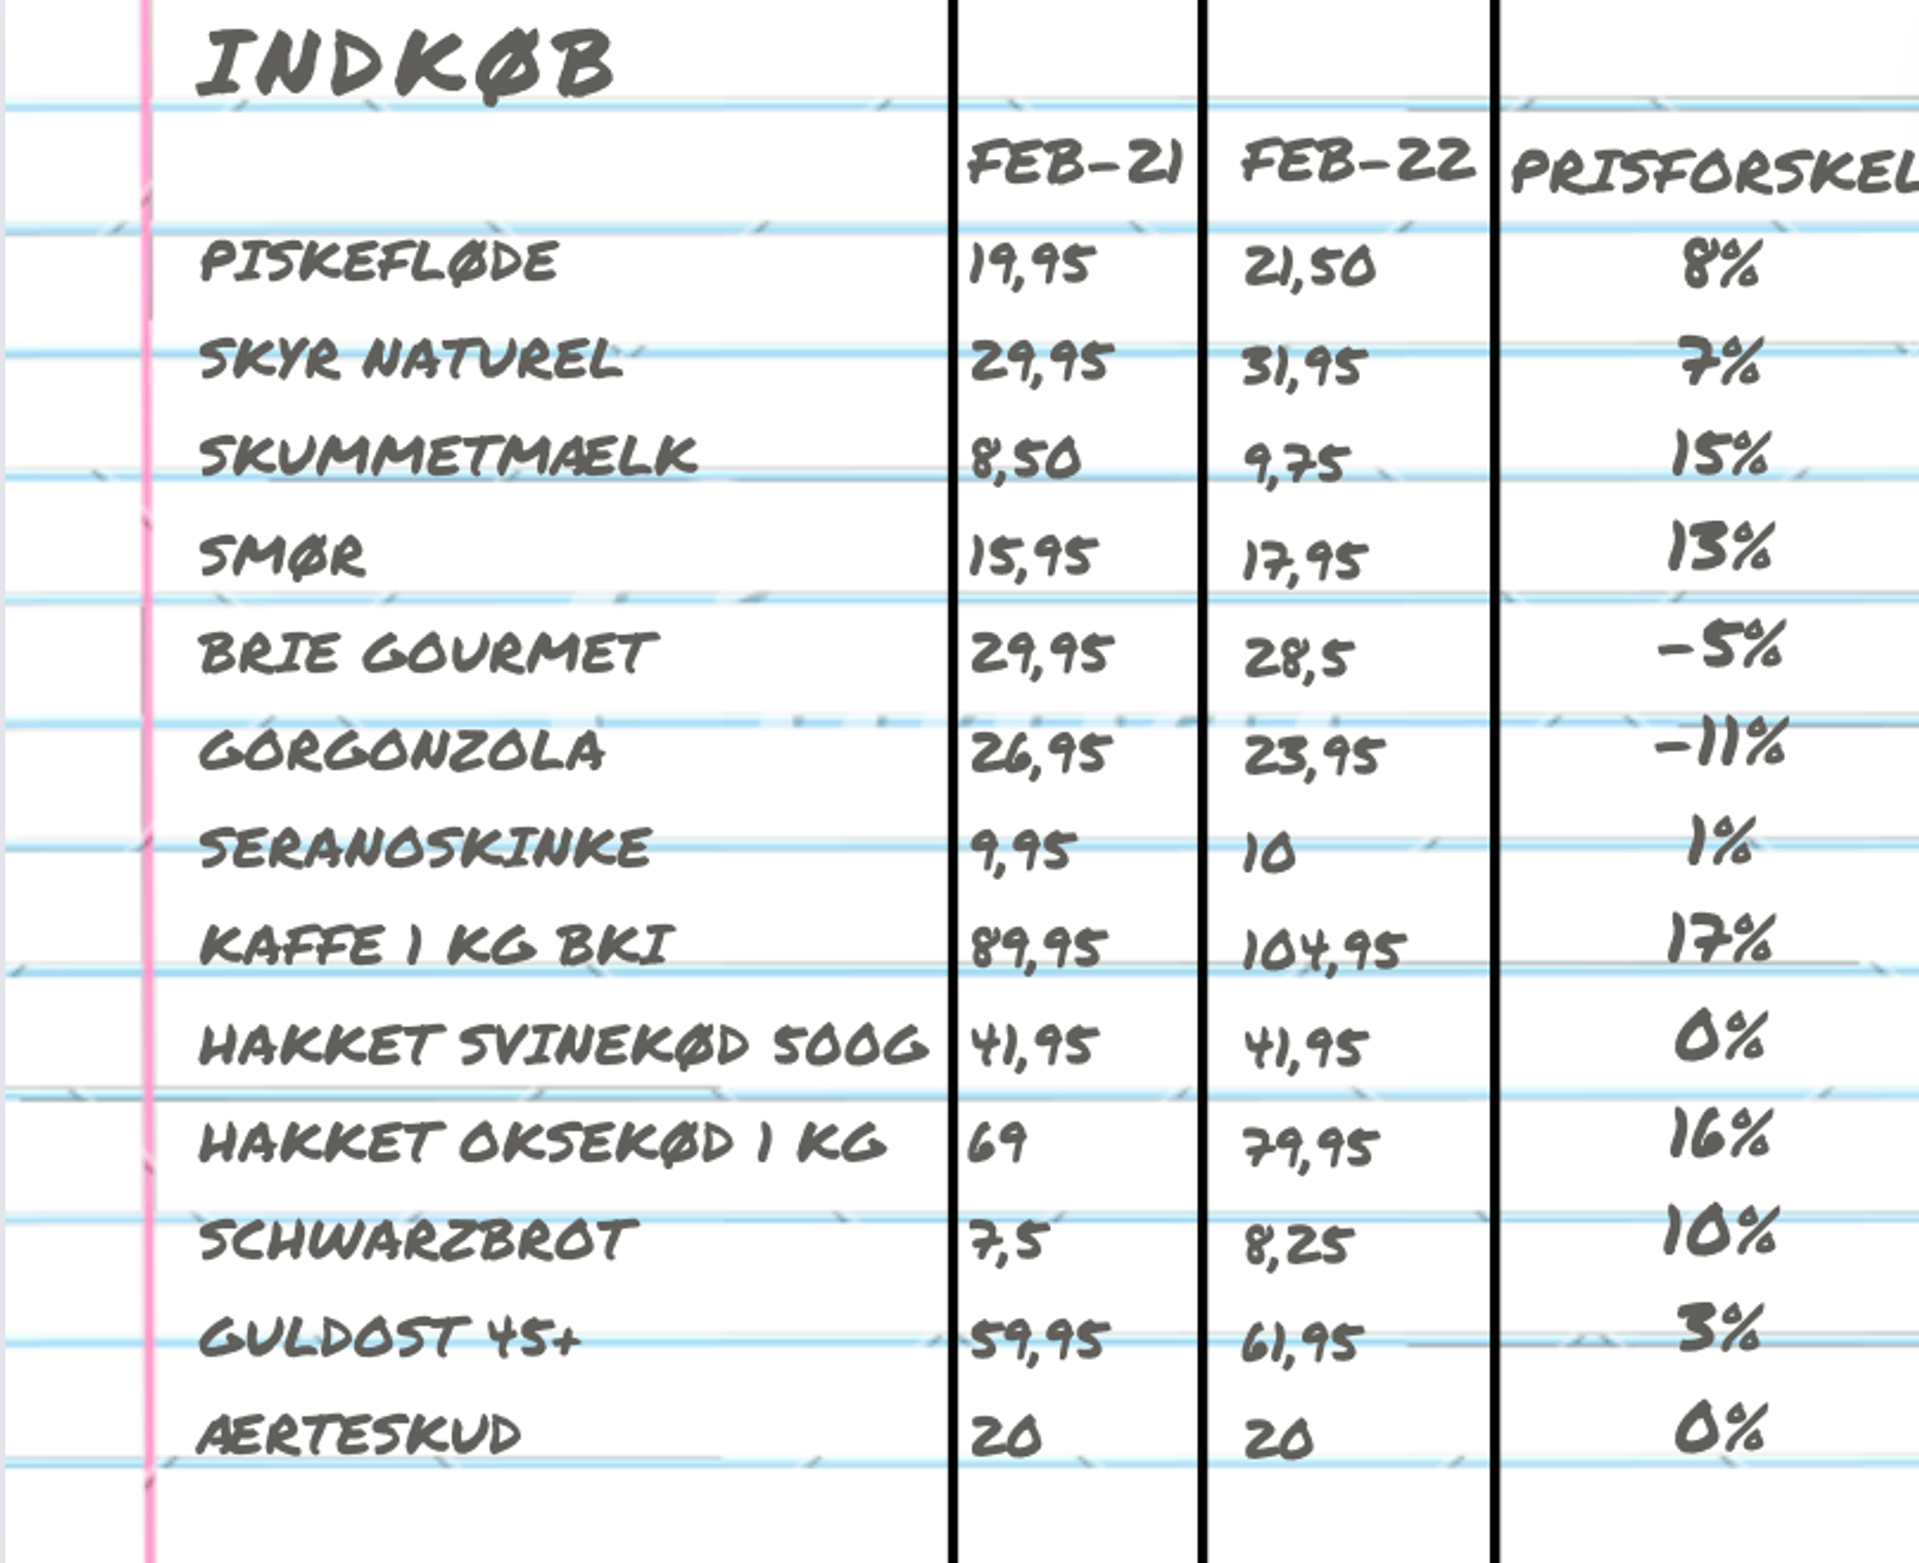 INDKØB
FEB-21 FEB-22 PRISFORSKEL
PISKEFLØDE 19,95 21,50 8%
SKYR NATUREL 29,95 31,95 7%
SKUMMETMÆLK 8,50 9,75 15%
SMØR 15,95 17,95 13%
BRIE GOURMET 29,95 28,5 -5%
GORGONZOLA 26,95 23,95 -11%
SERANOSKINKE 9,95 10 1%
KAFFE 1 KG BKI 89,95 104,95 17%
HAKKET SVINEKØD 500G 41,95 41,95 0%
HAKKET OKSEKØD 1 KG 69 79,95 16%
SCHWARZBROT 7,5 8,25 10%
GULDOST 45+ 59,95 61,95 3%
ÆRTESKUD 20 20 0%